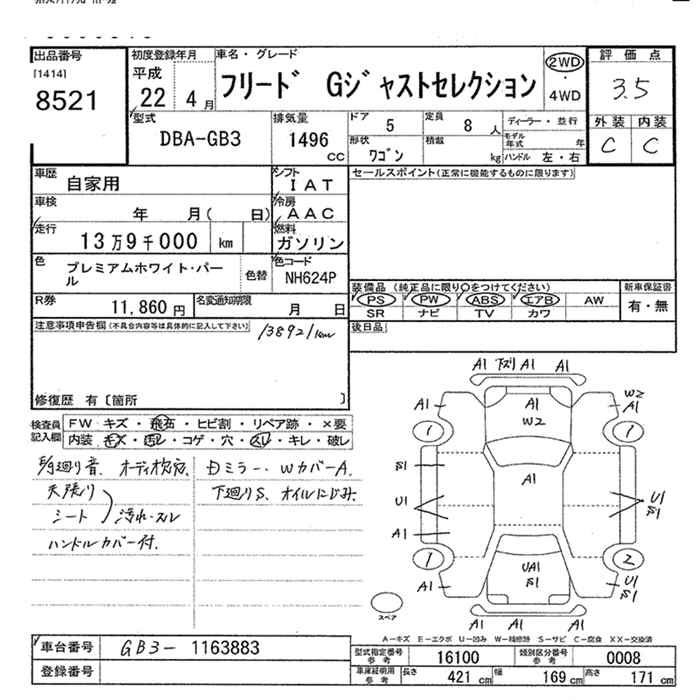 出品番号
[1414]
8521
初度登録年月
平成
22 4月
車名・グレード
フリード Gジャストセレクション
2WD
・
4WD
評価点
3.5
外装 内装
C C
型式
DBA-GB3
排気量
1496
CC
ドア 5
定員 8 人
ディーラー・並行
形状 ワゴン
積載 kg
モデル年式 年
ハンドル 左・右
車歴 自家用
シフト IAT
セールスポイント(正常に機能するものに限ります)
車検 年 月( 日)
冷房 AAC
走行 13万9千000 km
燃料 ガソリン
色 プレミアムホワイト・パール
色替
色コード NH624P
装備品 (純正品に限り○をつけてください)
新車保証書
PS PW ABS エアB AW
有・無
SR ナビ TV カワ
R券 11,860円
名変通知期限 月 日
後日品
注意事項申告欄(不具合内容等は具体的に記入して下さい)
138921km
修復歴 有〔箇所 〕
検査員記入欄
FW キズ・飛石・ヒビ割・リペア跡・×要
内装 キズ・汚レ・コゲ・穴・スレ・キレ・破レ
オーディオ
Dミラー・WカバーA.
天張り
シート 汚れ・スレ
下廻りS、オイルにじみ.
ハンドルカバー付.
A1 下ズリ A1 A1
A1 A1 W2 W2 A1
1 1
S1
A1
U1 U1 S1
A1
1 2
A1 UA1 S1 U1 S1
A1 A1 A1
スペア
A-キズ E-エクボ U-凹み W-補修跡 S-サビ C-腐食 XX-交換済
車台番号 GB3-1163883
登録番号
型式指定番号 参考 16100
類別区分番号 参考 0008
車庫証明用 参考
長さ 421 cm 幅 169 cm 高さ 171 cm